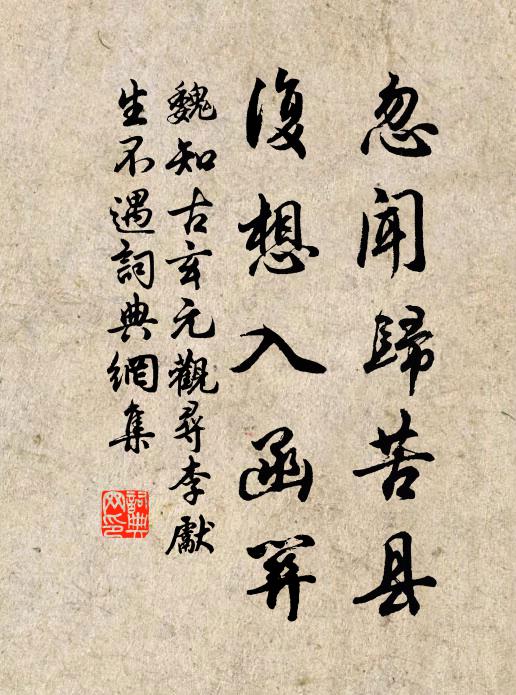 忽闻歸苦县
復想入函关
魏知古玄元觀尋李獻
生不遇詞典網集
詞典网印